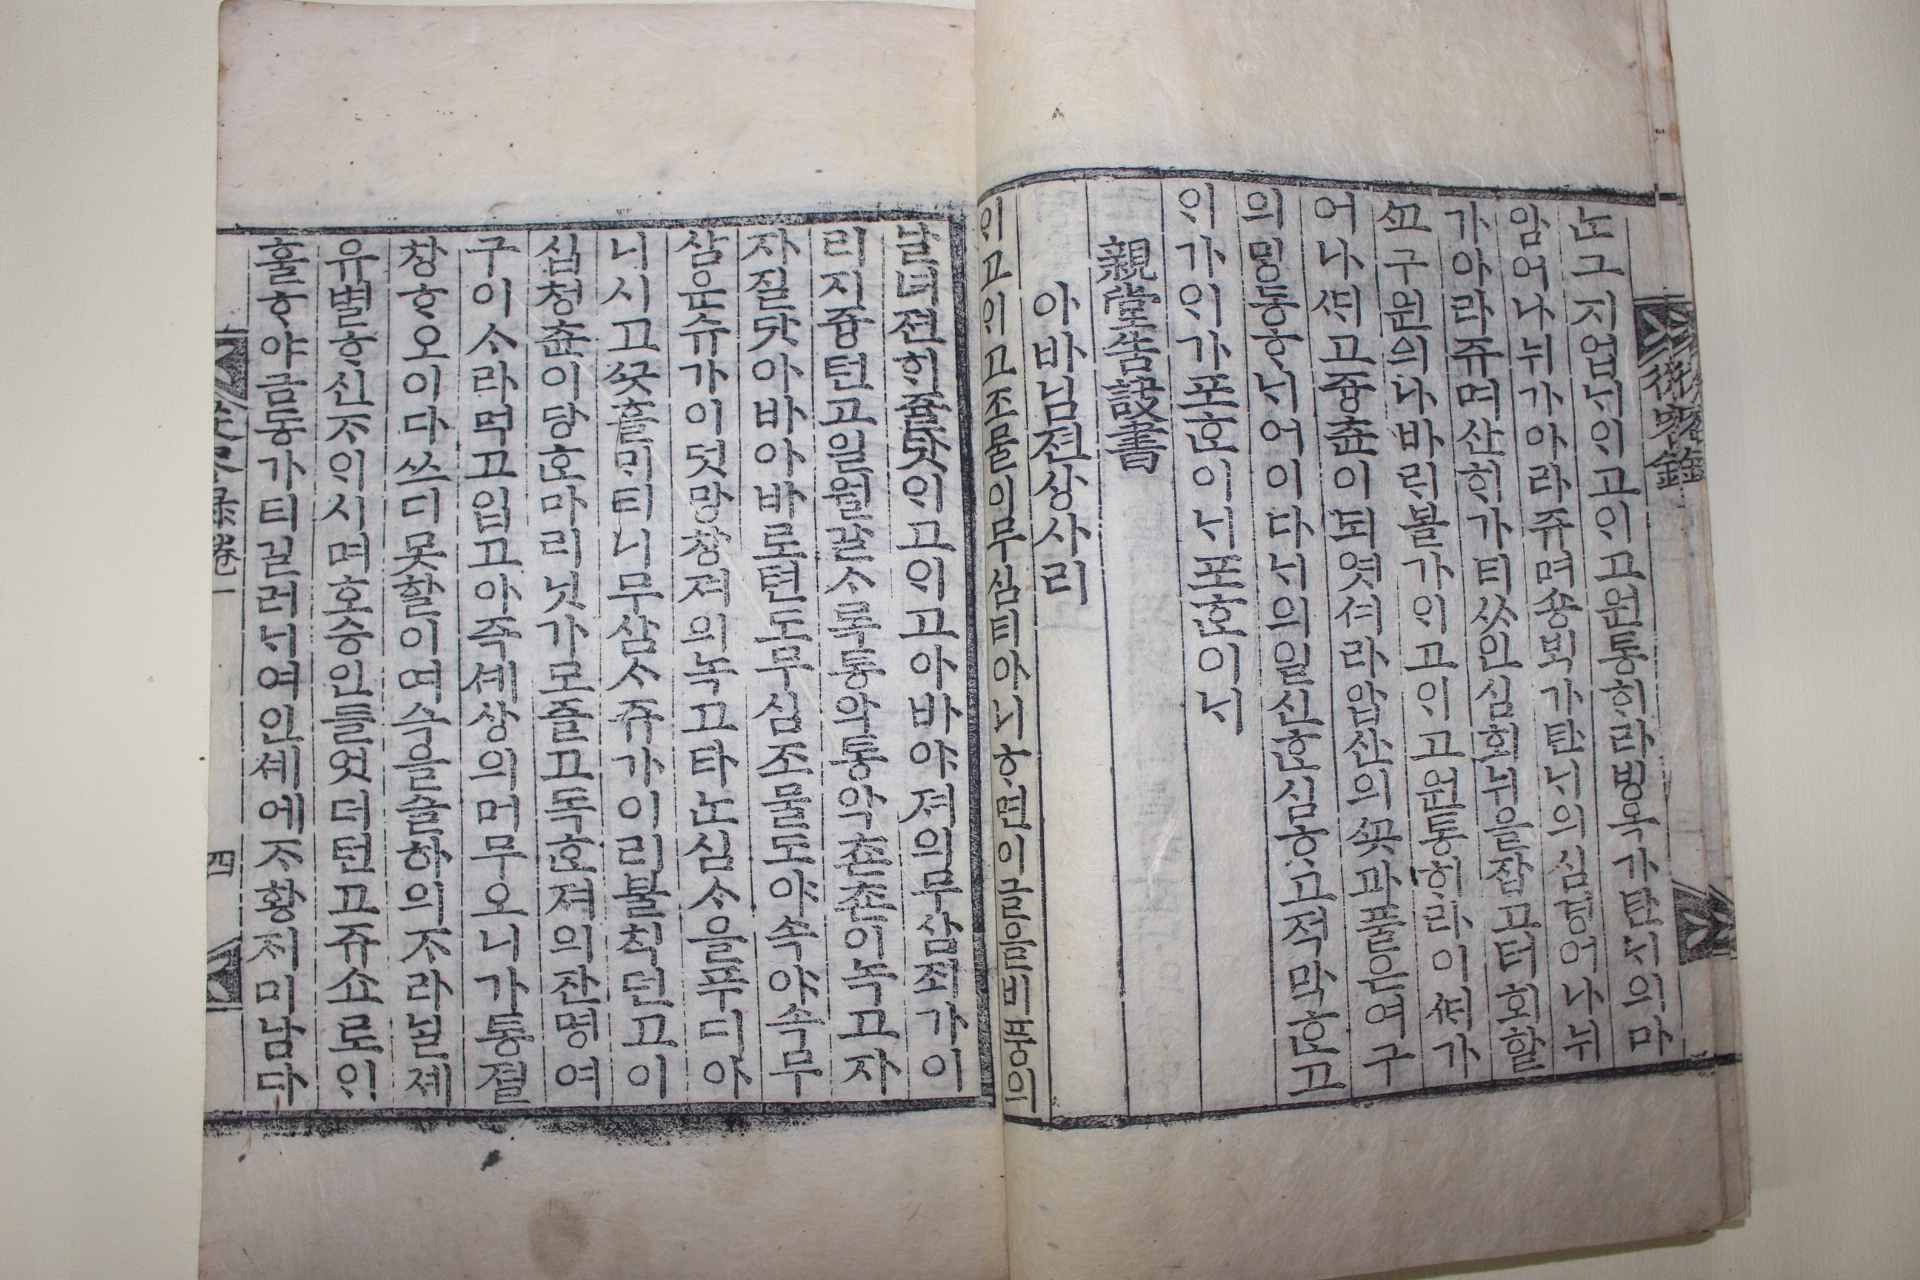 노그지업ᄂᆡᄋᆡ고ᄋᆡ고원통ᄒᆡ라빙옥가탄ᄂᆡ의마
암어나뉘가아라쥬며숑ᄇᆡᆨ가탄ᄂᆡ의심듕어나뉘
가아라쥬며산ᄒᆡ가티ᄊᆞ인심회뉘을잡고터회할
ᄭᅩ구원의나바린볼가ᄋᆡ고ᄋᆡ고원통ᄒᆡ라이ᄯᅢ가
어나ᄯᅢ고즁츈이되엿셔라압산의ᄭᅩᆺ과풀은여구
의밍동ᄒᆞᄂᆡ어이다ᄂᆡ의일신ᄒᆞᆫ심ᄒᆞ고적막ᄒᆞ고
ᄋᆡ가ᄋᆡ가포ᄒᆞᆫ이ᄂᆡ포ᄒᆞᆫ이ᄂᆡ
親堂告訣書
아바님젼상사리
ᄋᆡ고ᄋᆡ고조물의무심티아ᄂᆡᄒᆞ련이글을 풍의
날녀젼ᄒᆡ쥴닷ᄋᆡ고ᄋᆡ고아바야져의무삼죄가이
리지즁턴고일월갈ᄉᆞ록통악통악츤츤이녹고자
자질닷아바아바로텬도무심조물도야속야속무
삼운슈가이덧망창져의녹고타ᄂᆞᆫ심ᄉᆞ을푸디아
니시고ᄭᅩᆺ흘ᄆᆡ티니무삼ᄉᆞ쥬가이리불칙던고이
심쳥츈이당ᄒᆞᆫ마리닛가모즐고독ᄒᆞᆫ져의잔명여
구이ᄉᆞ라먹고입고아죡셰상의머무오니가통졀
창ᄒᆞ오이다쓰디못할이여수을슬하의ᄌᆞ라닐졔
유별ᄒᆞ신ᄌᆞᄋᆡ시며호승인들엇더턴고쥬쇼로ᄋᆡ
훌ᄒᆞ야금동가티길러ᄂᆡ여인셰에ᄌᆞ황지미남다
卷一
四